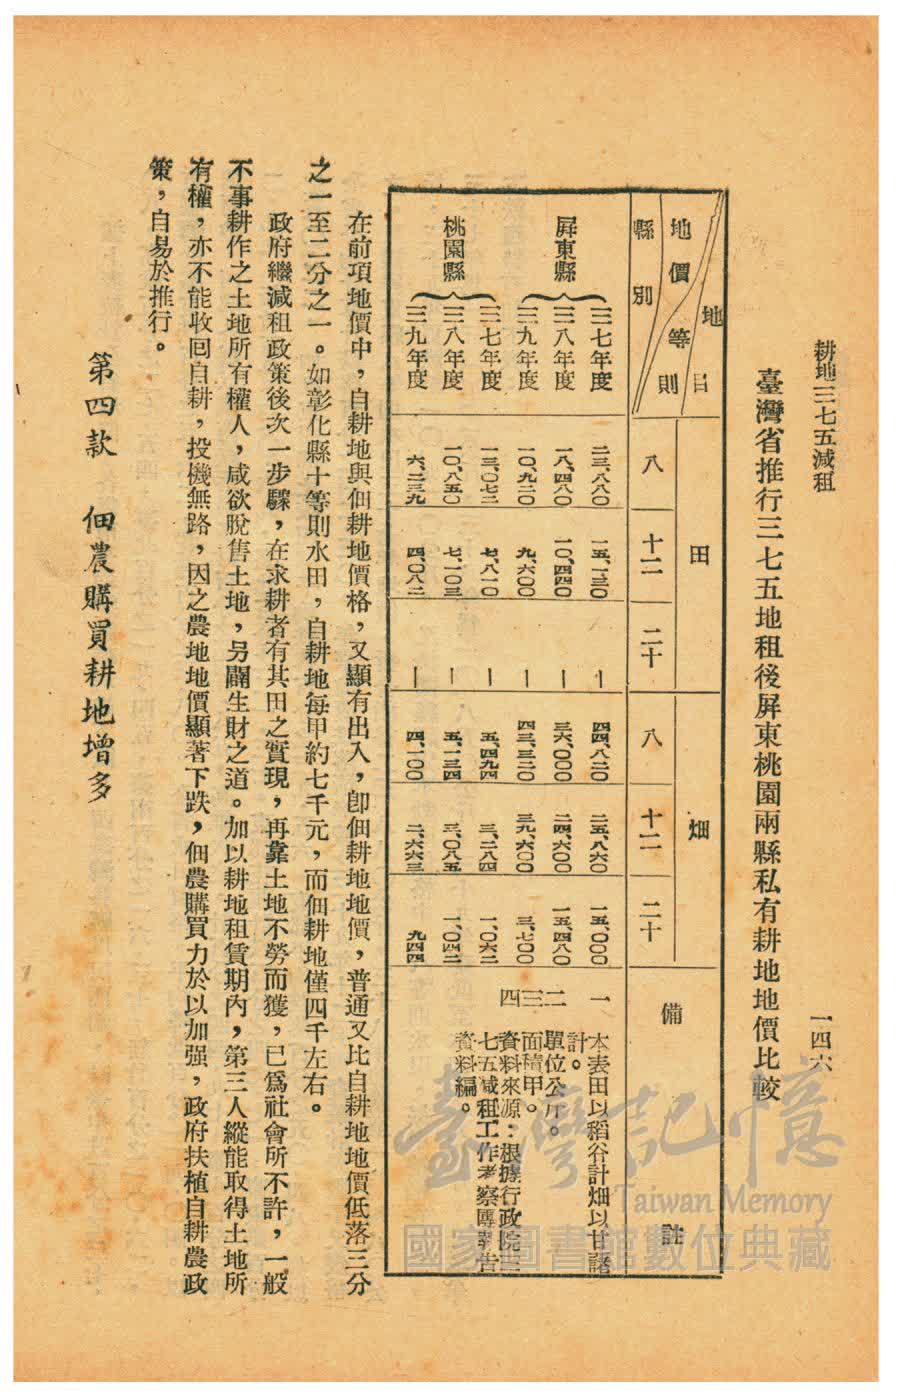 耕地三七五減租
一四六
臺灣省推行三七五地租後屏東桃園兩縣私有耕地地價比較
地目 田 畑 備註
地價等則
縣別 八 十二 二十 八 十二 二十
屏東縣
三七年度 二三、八八〇 一五、一三〇 — 四四、八二〇 二五、八六〇 一五、〇〇〇
三八年度 一八、四八〇 一〇、四四〇 — 三六、〇〇〇 二四、六〇〇 一五、四八〇
三九年度 一〇、九二〇 九、六〇〇 — 四三、三二〇 三九、六〇〇 三、七〇〇
桃園縣
三七年度 一三、〇七二 七、八一〇 — 五、四九四 三、二八四 一、〇六二
三八年度 一〇、八五〇 七、一〇三 — 五、一三四 三、〇八五 一、〇四二
三九年度 六、二三九 四、〇八二 — 四、一〇〇 二、六六三 九四四
一 本表田以稻谷計畑以甘藷
計。
二 單位公斤。
三 面積甲。
四 資料來源：根據行政院三
七五減租工作考察團報告
資料編。
在前項地價中，自耕地與佃耕地價格，又顯有出入，卽佃耕地地價，普通又比自耕地地價低落三分
之一至二分之一。如彰化縣十等則水田，自耕地每甲約七千元，而佃耕地僅四千左右。
政府繼減租政策後次一步驟，在求耕者有其田之實現，再靠土地不勞而獲，已爲社會所不許，一般
不事耕作之土地所有權人，咸欲脫售土地，另闢生財之道。加以耕地租賃期內，第三人縱能取得土地所
有權，亦不能收回自耕，投機無路，因之農地地價顯著下跌，佃農購買力於以加强，政府扶植自耕農政
策，自易於推行。
第四款 佃農購買耕地增多
臺灣記憶
Taiwan Memory
國家圖書館數位典藏